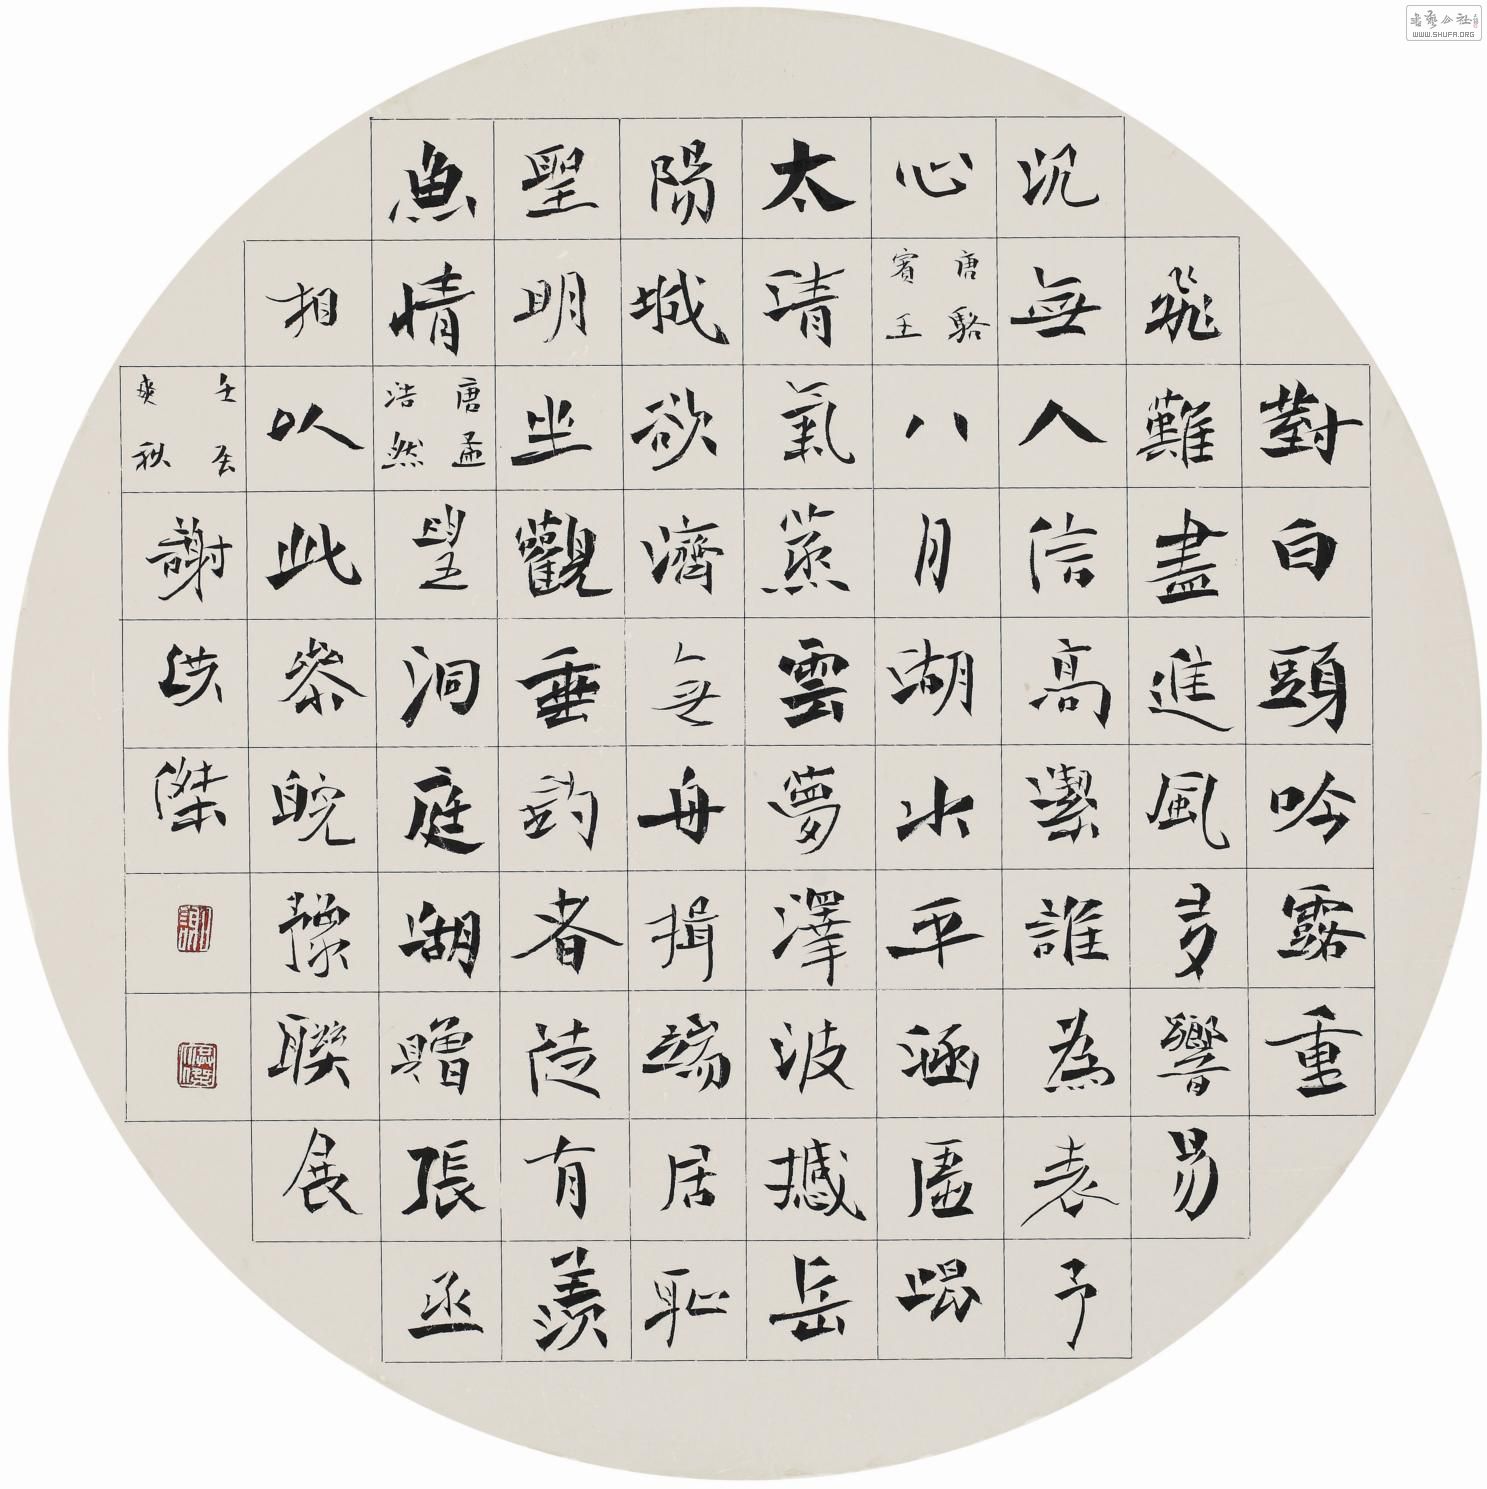 對白頭吟露重
飛難盡進風多響易
沉無人信高潔誰為表予
心唐駱賓王八月湖水平涵虛混
太清氣蒸雲夢澤波撼岳
陽城欲濟無舟楫端居恥
聖明坐觀垂釣者徒有羨
魚情唐孟浩然望洞庭湖贈張丞
相以此參皖豫聯展
壬辰爽秋謝洪傑
書藝公社
WWW.SHUFA.ORG